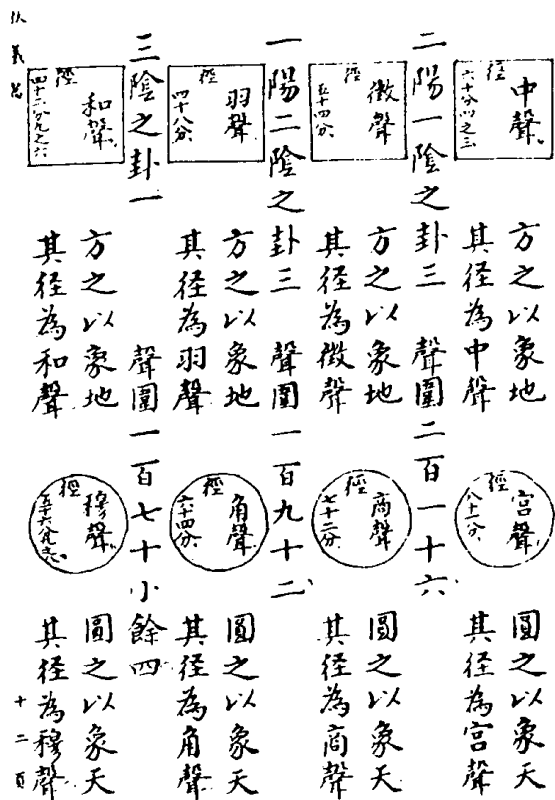 中聲
徑
六十分四之三
方之以象地
其径為中聲
宮聲
徑
八十一分
圓之以象天
其径為宮聲
二陽一陰之卦三 聲圍二百一十六
徵聲
徑
五十四分
方之以象地
其径為徵聲
商聲
徑
七十二分
圓之以象天
其径為商聲
一陽二陰之卦三 聲圍一百九十二
羽聲
徑
四十八分
方之以象地
其径為羽聲
角聲
徑
六十四分
圓之以象天
其径為角聲
三陰之卦一 聲圍一百七十小餘四
和聲
徑
四十二分九之六
方之以象地
其径為和聲
穆聲
徑
五十六分九之
圓之以象天
其径為穆聲
十二頁